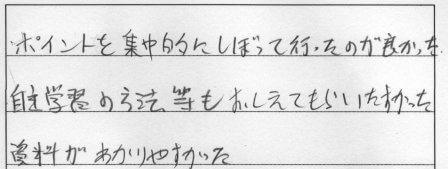 ポイントを集中的にしぼって行ったのが良かった。
自主学習の方法等もおしえてもらいたかった
資料がわかりやすかった